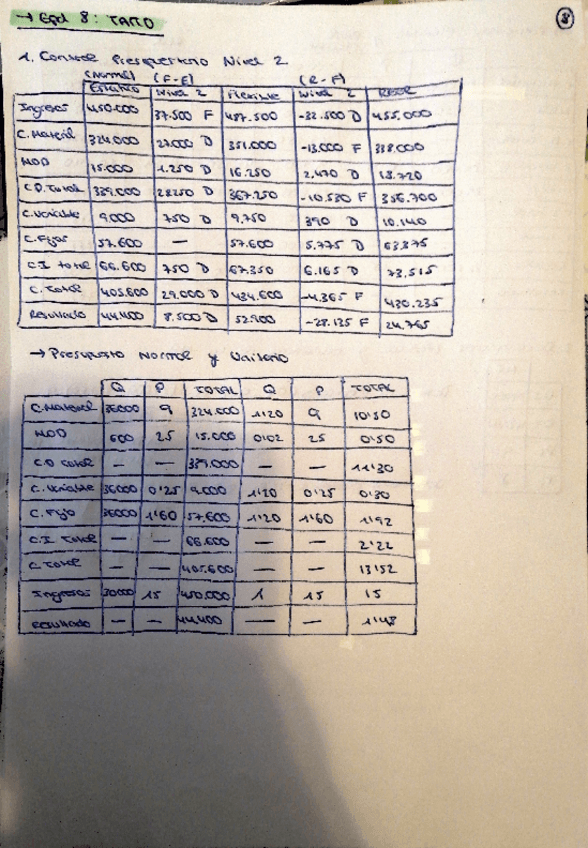 → Ejed 8: TATO
8
1. Control Presupuestario Nivel 2
(Normal) (F-E) (R-F)
Estático Nivel 2 Flexible Nivel 2 Real
Ingresos 450.000 37.500 F 487.500 -32.500 D 455.000
C. Material 324.000 27.000 D 351.000 -13.000 F 338.000
MOD 15.000 1.250 D 16.250 2.470 D 18.720
C.D. Total 339.000 28250 D 367.250 -10.530 F 356.700
C. Variable 9.000 750 D 9.750 390 D 10.140
C. Fijos 57.600 — 57.600 5.775 D 63.375
C.I total 66.600 750 D 67.350 6.165 D 73.515
C. Total 405.600 29.000 D 434.600 -4.365 F 430.235
Resultado 44.400 8.500 D 52.900 -28.135 F 24.765
→ Presupuesto Normal y Unitario
Q P TOTAL Q P TOTAL
C. Material 36000 9 324.000 1'20 9 10'80
MOD 600 25 15.000 0'02 25 0'50
C.D total — — 339.000 — — 11'30
C. Variable 36000 0'25 9.000 1'20 0'25 0'30
C. Fijo 36000 1'60 57.600 1'20 1'60 1'92
C.I. Total — — 66.600 — — 2'22
C. Total — — 405.600 — — 13'52
Ingresos 30000 15 450.000 1 15 15
Resultado — — 44.400 — — 1'48